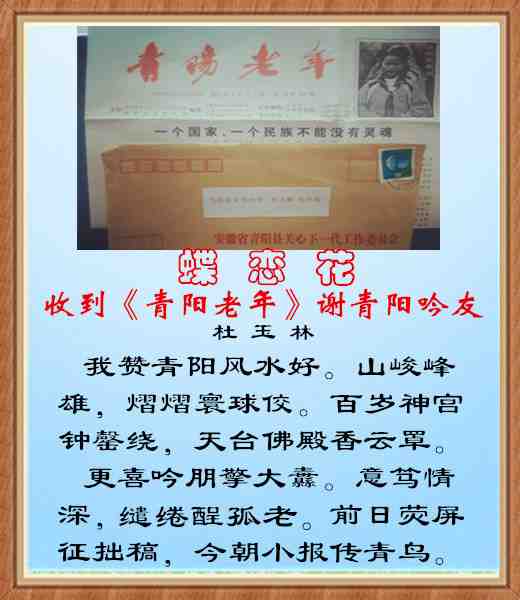 青陽老年
一个国家、一个民族不能没有灵魂
安徽省青阳县关心下一代工作委员会
蝶恋花
收到《青阳老年》谢青阳吟友
杜玉林
我赞青阳风水好。山峻峰
雄，熠熠寰球佼。百岁神宫
钟罄绕，天台佛殿香云罩。
更喜吟朋擎大纛。意笃情
深，缱绻酲孤老。前日荧屏
征拙稿，今朝小报传青鸟。